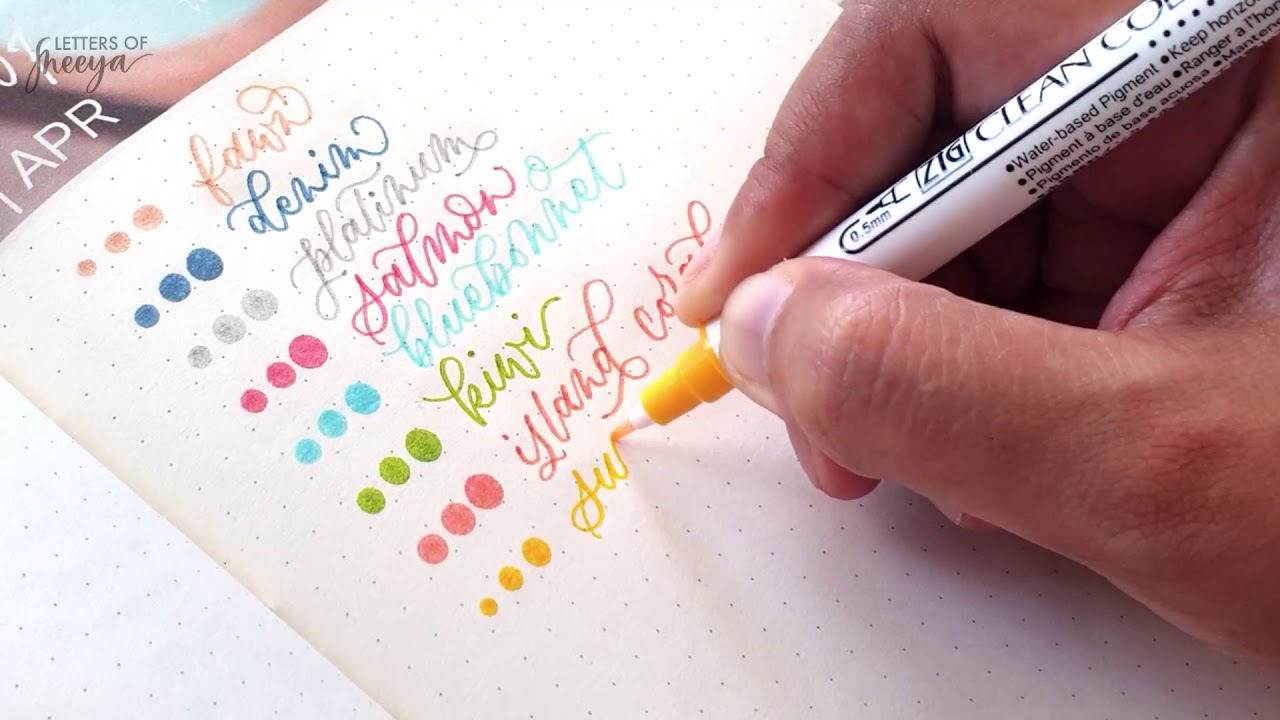 LETTERS OF
sheeya
1 APR
fawn
denim
platinum
salmon
bluebonnet
kiwi
island coral
su
ZIG CLEAN COL
0.5mm
•Water-based Pigment •Keep horizo
•Pigment à base d'eau •Ranger a l'hor
•Pigmento de base acuosa •Mantene